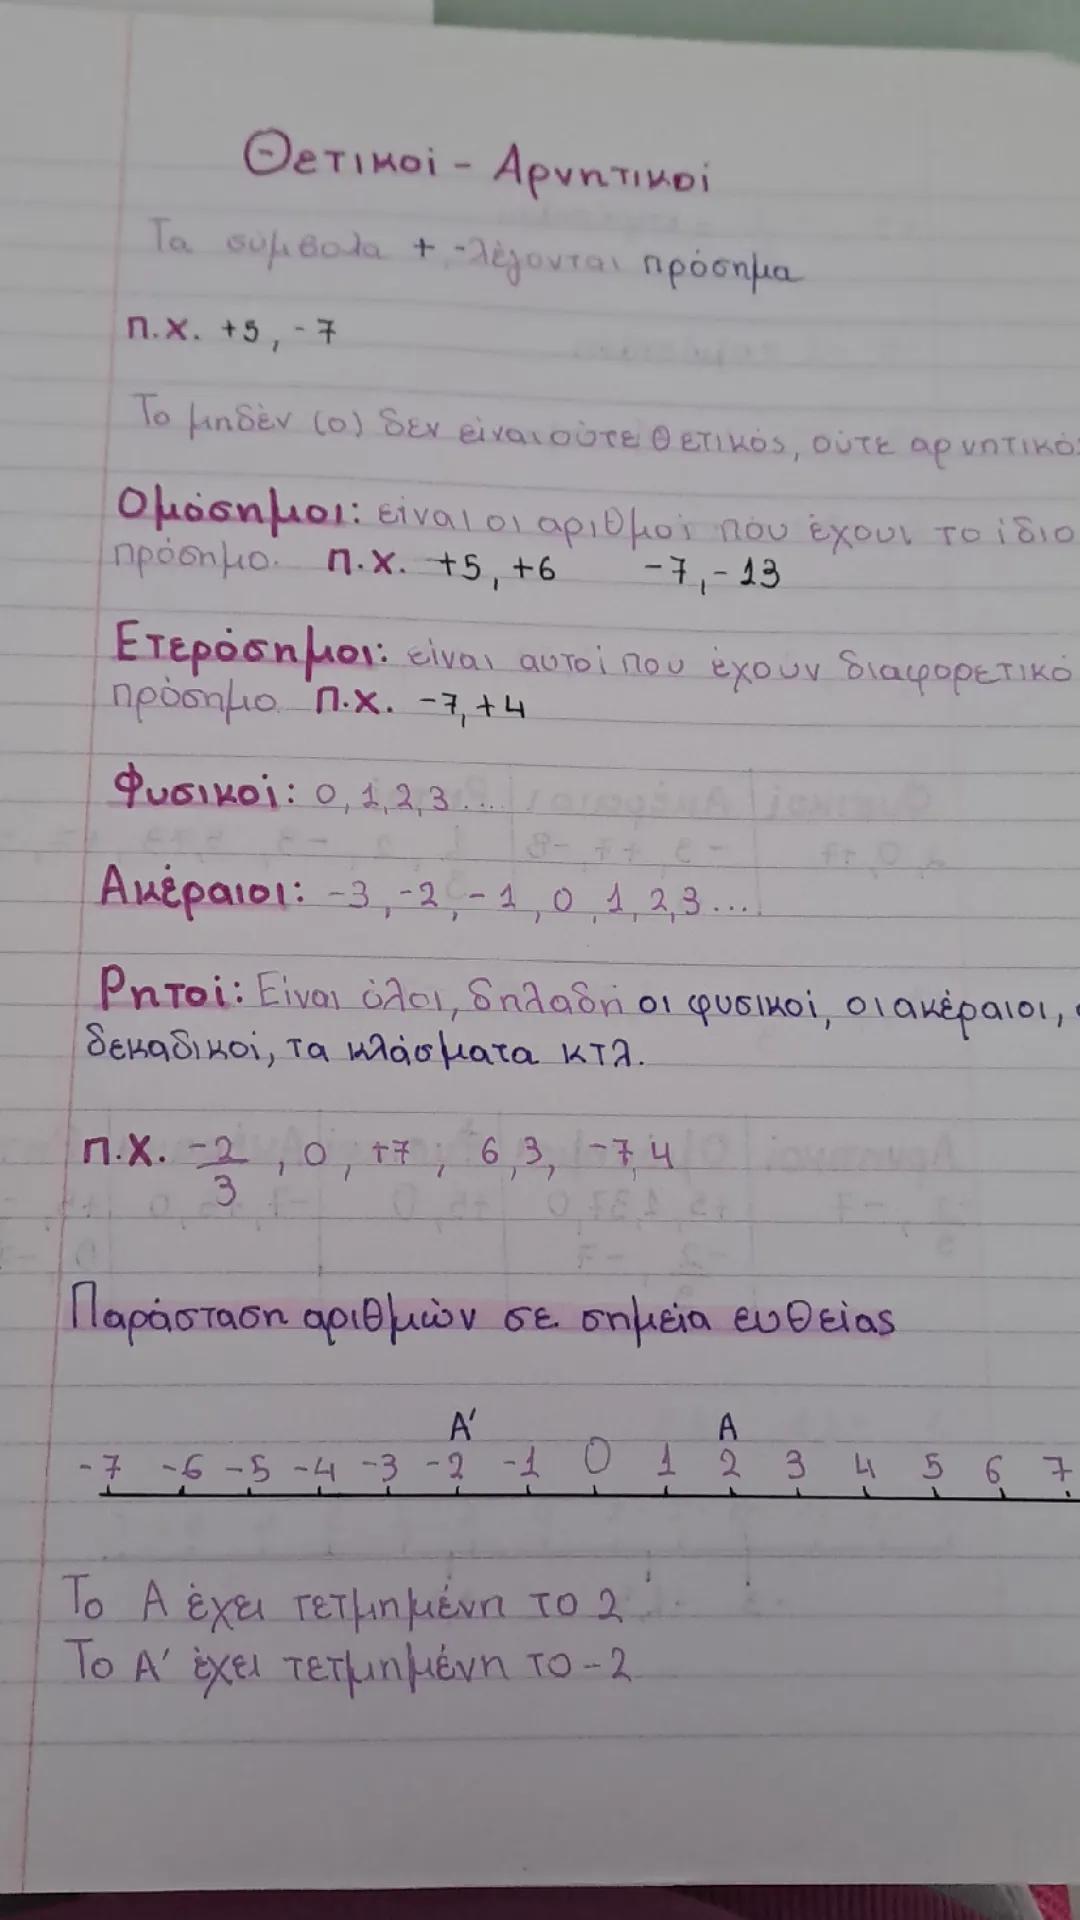 Θετικοί - Αρνητικοί
Τα σύμβολα + , - λέγονται πρόσημα
π.χ. +5, -7
Το μηδέν (0) δεν είναι ούτε θετικός, ούτε αρνητικός
Ομόσημοι: είναι οι αριθμοί που έχουν το ίδιο
πρόσημο. π.χ. +5, +6 -7, -13
Ετερόσημοι: είναι αυτοί που έχουν διαφορετικό
πρόσημο π.χ. -7, +4
Φυσικοί: 0, 1, 2, 3...
Ακέραιοι: -3, -2, -1, 0, 1, 2, 3...
Ρητοί: Είναι όλοι, δηλαδή οι φυσικοί, οι ακέραιοι,
δεκαδικοί, τα κλάσματα κτλ.
π.χ. -2/3, 0, +7, 6,3, -7,4
Παράσταση αριθμών σε σημεία ευθείας
Α' Α
-7 -6 -5 -4 -3 -2 -1 0 1 2 3 4 5 6 7
Το Α έχει τετμημένη το 2
Το Α' έχει τετμημένη το -2